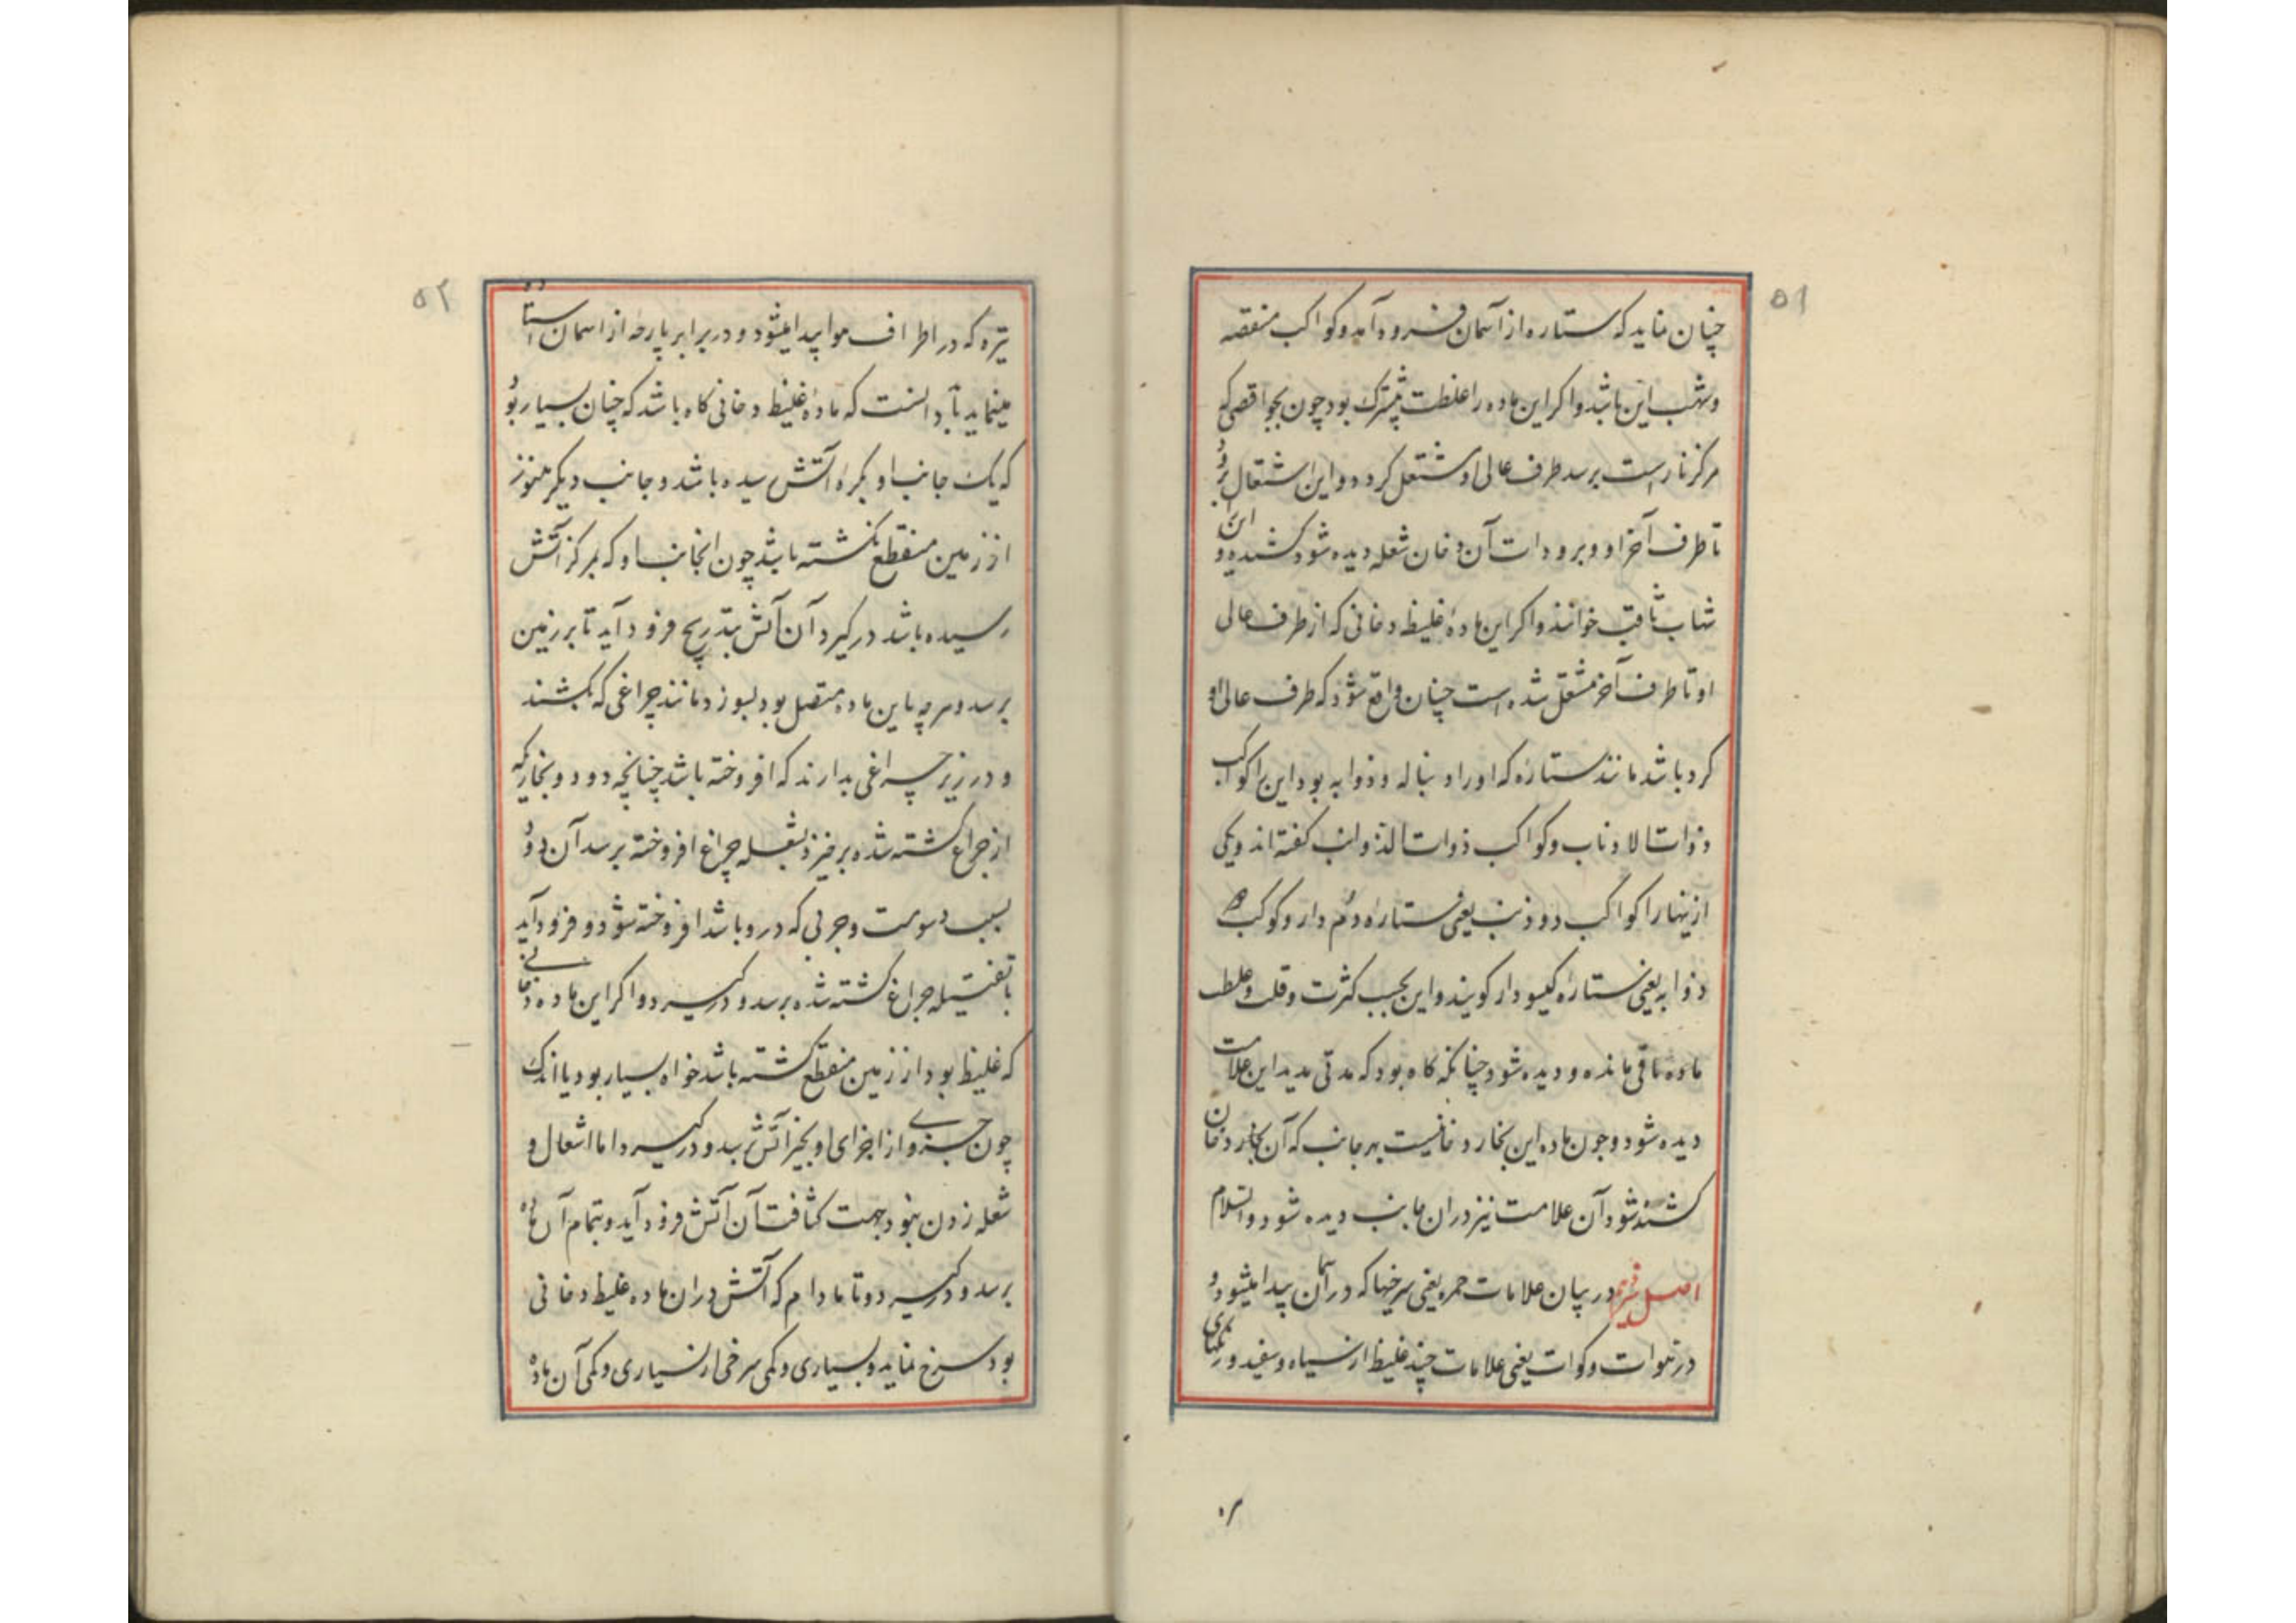 ۵۱
چنان نماید که ستاره از آسمان فرود آمد و کواکب منقضه
و شهب این باشد و اکر این ماده را غلظت بیشترک بود چون بجو اقصی که
مرکز نار است برسد طرف عالی او مشتعل کردد و این اشتعال برود
تا طرف آخر او و برودات آن دخان شعله دیده شود کشیده و این
شهاب ثاقب خوانند و اکر این مادهٔ غلیظ دخانی که از طرف عالی
او تا طرف آخر مشتعل شده است چنان واقع شود که طرف عالی او
کرد باشد مانند ستارهٔ که او را دنباله و ذوابه بود این را کواکب
ذوات الاذناب و کواکب ذوات الذوائب کفته اند و یکی
از ینها را کواکب ذو ذنب یعنی ستارهٔ دُم دار و کوکب
ذوابه یعنی ستارهٔ کیسودار کویند و این بحسب کثرت و قلت و غلظ
ماده باقی مانده و دیده شود چنانکه کاه بود که مدتی مدید این علامت
دیده شود و چون ماده این بخار دخانیست بهر جانب که آن بخار دخان
کشنده شود آن علامت نیز دران جانب دیده شود والسلام
اصل در بیان علامات حمر یعنی سرخیها که در آسمان پیدا میشود و
در هوات و کوات یعنی علامات چند غلیظ از سیاه و سفید و رنکهای
۵۲
تیره که در اطراف هوا پیدا میشود و در برابر پارهٔ از اسمان استاده
مینماید باید دانست که مادهٔ غلیظ دخانی کاه باشد که چنان بسیار بود
که یک جانب او بکرهٔ آتش رسیده باشد و جانب دیکر هنوز
از زمین منقطع نکشته باشد چون انجانب او که بمرکز آتش
رسیده باشد در کیرد آن آتش بتدریج فرود آید تا بر زمین
برسد و هر چه باین ماده متصل بود بسوزد مانند چراغی که بکشند
و در زیر چراغی بدارند که افروخته باشد چنانچه دود و بخاریکه
از چراغ کشته شده بر خیزد بشعله چراغ افروخته برسد آن دود
بسبب دسومت و چربی که در و باشد افروخته شود و فرود آید
تا بفتیله چراغ کشته شده برسد و در کیرد و اکر این ماده دخانی
که غلیظ بود از زمین منقطع کشته باشد خواه بسیار بود یا اندک
چون جزوی از اجزای او بحیز آتش رسد و در کیرد اما اشعال و
شعله زدن نبود بجهت کثافت آن آتش فرود آید و بتمام آن ماده
برسد و در کیرد و تا مادام که آتش دران ماده غلیظ دخانی
بود سرخ نماید و بسیاری و کمی سرخی از بسیاری و کمی آن ماده